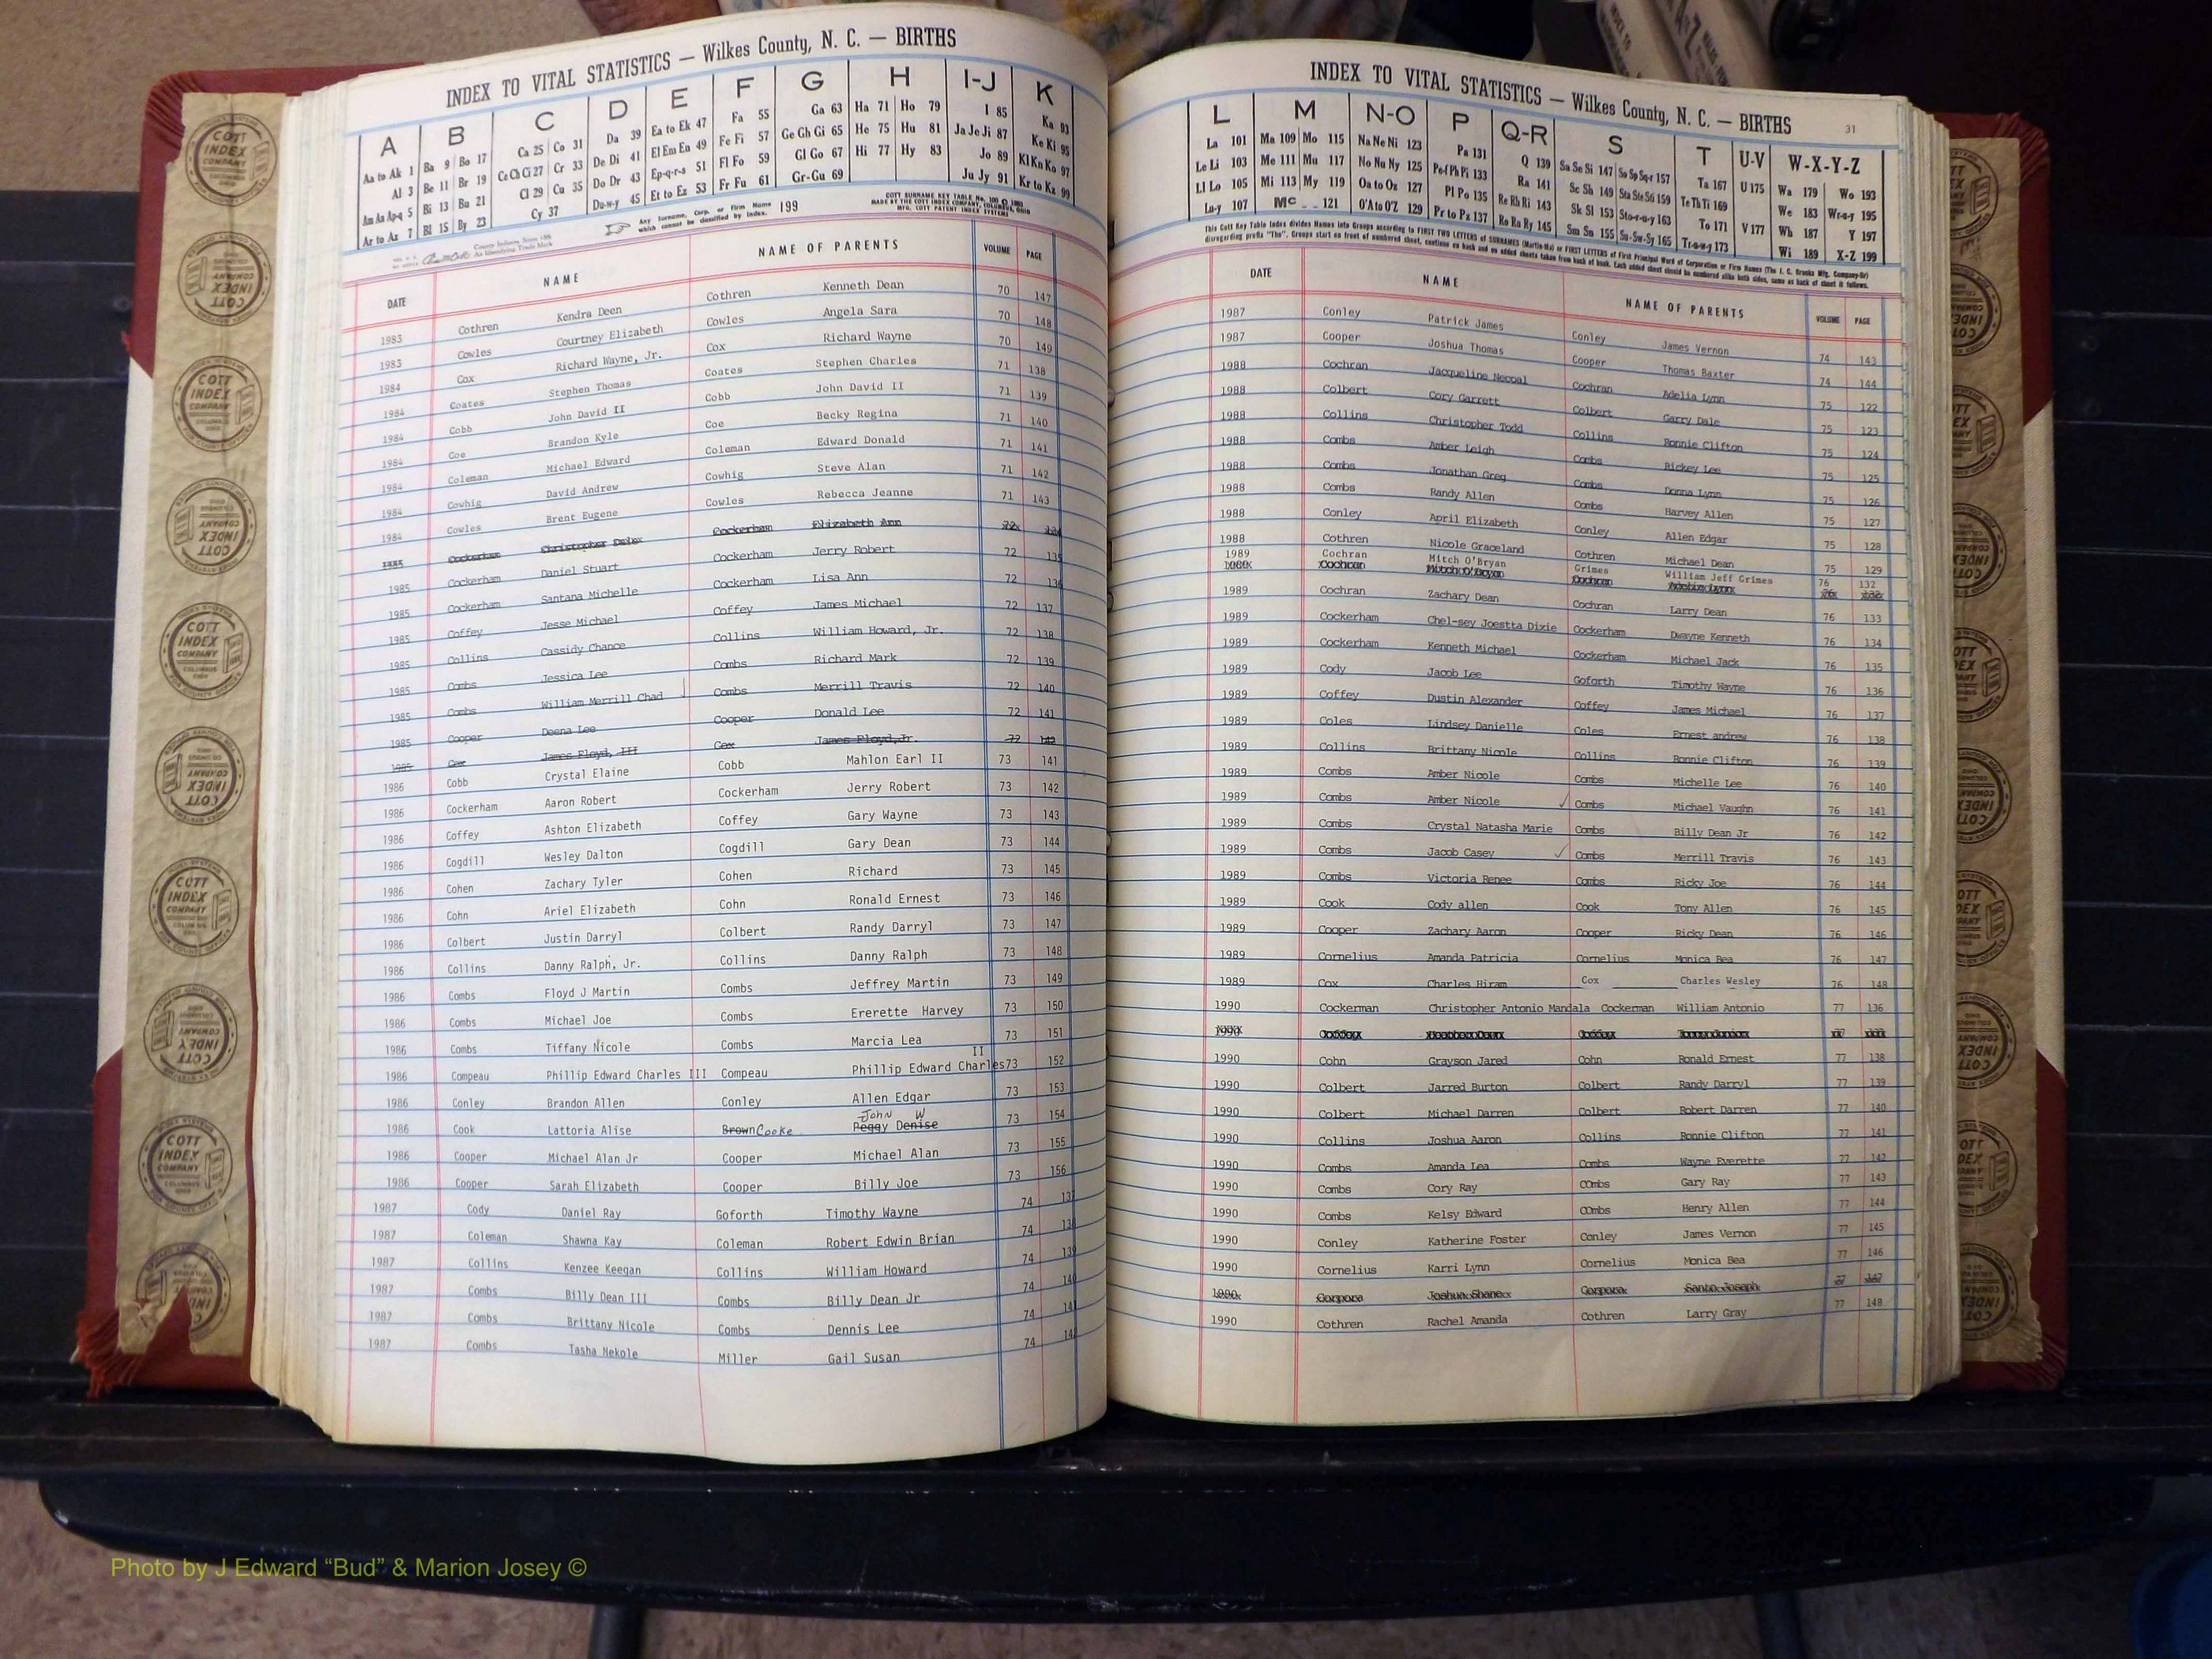 INDEX TO VITAL STATISTICS — Wilkes County, N. C. — BIRTHS
A B C D E F G H I-J K
Aa to Ak 1 Ba 9 Bo 17 Ca 25 Co 31 Da 39 Ea to Ek 47 Fa 55 Ga 63 Ha 71 Ho 79 I 85 Ka 93
Al 3 Be 11 Br 19 Ce Ch Ci 27 Cr 33 De Di 41 El Em En 49 Fe Fi 57 Ge Gh Gi 65 He 75 Hu 81 Ja Je Ji 87 Ke Ki 95
Am An Ap-q 5 Bi 13 Bu 21 Cl 29 Cu 35 Do Dr 43 Ep-q-r-s 51 Fl Fo 59 Gl Go 67 Hi 77 Hy 83 Jo 89 Kl Kn Ko 97
Ar to Az 7 Bl 15 By 23 Cy 37 Du-w-y 45 Et to Ez 53 Fr Fu 61 Gr-Gu 69 Ju Jy 91 Kr to Kz 99
Any Surname, Corp. or Firm Name which cannot be classified by Index. 199
DATE NAME NAME OF PARENTS VOLUME PAGE
1983 Cothren Kendra Deen Cothren Kenneth Dean 70 147
1983 Cowles Courtney Elizabeth Cowles Angela Sara 70 148
1984 Cox Richard Wayne, Jr. Cox Richard Wayne 70 149
1984 Coates Stephen Thomas Coates Stephen Charles 71 138
1984 Cobb John David II Cobb John David II 71 139
1984 Coe Brandon Kyle Coe Becky Regina 71 140
1984 Coleman Michael Edward Coleman Edward Donald 71 141
1984 Cowhig David Andrew Cowhig Steve Alan 71 142
1984 Cowles Brent Eugene Cowles Rebecca Jeanne 71 143
Cockerham Christopher Cockerham Elizabeth Ann
1985 Cockerham Daniel Stuart Cockerham Jerry Robert 72 135
1985 Cockerham Santana Michelle Cockerham Lisa Ann 72 136
1985 Coffey Jesse Michael Coffey James Michael 72 137
1985 Collins Cassidy Chance Collins William Howard, Jr. 72 138
1985 Combs Jessica Lee Combs Richard Mark 72 139
1985 Combs William Merrill Chad Combs Merrill Travis 72 140
1985 Cooper Deena Lee Cooper Donald Lee 72 141
1985 Cox James Floyd, III Cox James Floyd, Jr. 72 142
1986 Cobb Crystal Elaine Cobb Mahlon Earl II 73 141
1986 Cockerham Aaron Robert Cockerham Jerry Robert 73 142
1986 Coffey Ashton Elizabeth Coffey Gary Wayne 73 143
1986 Cogdill Wesley Dalton Cogdill Gary Dean 73 144
1986 Cohen Zachary Tyler Cohen Richard 73 145
1986 Cohn Ariel Elizabeth Cohn Ronald Ernest 73 146
1986 Colbert Justin Darryl Colbert Randy Darryl 73 147
1986 Collins Danny Ralph, Jr. Collins Danny Ralph 73 148
1986 Combs Floyd J Martin Combs Jeffrey Martin 73 149
1986 Combs Michael Joe Combs Ererette Harvey 73 150
1986 Combs Tiffany Nicole Combs Marcia Lea 73 151
II
1986 Compeau Phillip Edward Charles III Compeau Phillip Edward Charles 73 152
1986 Conley Brandon Allen Conley Allen Edgar 73 153
John W
1986 Cook Lattoria Alise Brown Cooke Peggy Denise 73 154
1986 Cooper Michael Alan Jr Cooper Michael Alan 73 155
1986 Cooper Sarah Elizabeth Cooper Billy Joe 73 156
1987 Cody Daniel Ray Goforth Timothy Wayne 74 137
1987 Coleman Shawna Kay Coleman Robert Edwin Brian 74 138
1987 Collins Kenzee Keegan Collins William Howard 74 139
1987 Combs Billy Dean III Combs Billy Dean Jr 74 140
1987 Combs Brittany Nicole Combs Dennis Lee 74 141
1987 Combs Tasha Nekole Miller Gail Susan 74 142
INDEX TO VITAL STATISTICS — Wilkes County, N. C. — BIRTHS 31
L M N-O P Q-R S T U-V W-X-Y-Z
La 101 Ma 109 Mo 115 Na Ne Ni 123 Pa 131 Q 139 Sa Se Si 147 So Sp Sq-r 157 Ta 167 U 175 Wa 179 Wo 193
Le Li 103 Me 111 Mu 117 No Nu Ny 125 Pe-f Ph Pi 133 Ra 141 Sc Sh 149 Sta Ste Sti 159 Te Th Ti 169 We 183 Wr-u-y 195
Ll Lo 105 Mi 113 My 119 Oa to Oz 127 Pl Po 135 Re Rh Ri 143 Sk Sl 153 Sto-r-u-y 163 To 171 V 177 Wh 187 Y 197
Lu-y 107 Mc 121 O'A to O'Z 129 Pr to Pz 137 Ro Ru Ry 145 Sm Sn 155 Su-Sw-Sy 165 Tr-u-w-y 173 Wi 189 X-Z 199
DATE NAME NAME OF PARENTS VOLUME PAGE
1987 Conley Patrick James Conley James Vernon 74 143
1987 Cooper Joshua Thomas Cooper Thomas Baxter 74 144
1988 Cochran Jacqueline Necoal Cochran Adelia Lynn 75 122
1988 Colbert Cory Garrett Colbert Garry Dale 75 123
1988 Collins Christopher Todd Collins Ronnie Clifton 75 124
1988 Combs Amber Leigh Combs Rickey Lee 75 125
1988 Combs Jonathan Greg Combs Donna Lynn 75 126
1988 Combs Randy Allen Combs Harvey Allen 75 127
1988 Conley April Elizabeth Conley Allen Edgar 75 128
1988 Cothren Nicole Graceland Cothren Michael Dean 75 129
1989 Cochran Mitch O'Bryan Grimes William Jeff Grimes 76 132
Cochran Mitch O'Bryan Cochran
1989 Cochran Zachary Dean Cochran Larry Dean 76 133
1989 Cockerham Chel-sey Joestta Dixie Cockerham Dwayne Kenneth 76 134
1989 Cockerham Kenneth Michael Cockerham Michael Jack 76 135
1989 Cody Jacob Lee Goforth Timothy Wayne 76 136
1989 Coffey Dustin Alexander Coffey James Michael 76 137
1989 Coles Lindsey Danielle Coles Ernest andrew 76 138
1989 Collins Brittany Nicole Collins Ronnie Clifton 76 139
1989 Combs Amber Nicole Combs Michelle Lee 76 140
1989 Combs Amber Nicole ✓ Combs Michael Vaughn 76 141
1989 Combs Crystal Natasha Marie Combs Billy Dean Jr 76 142
1989 Combs Jacob Casey ✓ Combs Merrill Travis 76 143
1989 Combs Victoria Renee Combs Ricky Joe 76 144
1989 Cook Cody allen Cook Tony Allen 76 145
1989 Cooper Zachary Aaron Cooper Ricky Dean 76 146
1989 Cornelius Amanda Patricia Cornelius Monica Bea 76 147
1989 Cox Charles Hiram Cox Charles Wesley 76 148
1990 Cockerman Christopher Antonio Mandala Cockerman William Antonio 77 136
1990
1990 Cohn Grayson Jared Cohn Ronald Ernest 77 138
1990 Colbert Jarred Burton Colbert Randy Darryl 77 139
1990 Colbert Michael Darren Colbert Robert Darren 77 140
1990 Collins Joshua Aaron Collins Ronnie Clifton 77 141
1990 Combs Amanda Lea Combs Wayne Everette 77 142
1990 Combs Cory Ray COmbs Gary Ray 77 143
1990 Combs Kelsy Edward COmbs Henry Allen 77 144
1990 Conley Katherine Foster Conley James Vernon 77 145
1990 Cornelius Karri Lynn Cornelius Monica Bea 77 146
1990 Corpora Joshua Shane Corpora Santo Joseph 77 147
1990 Cothren Rachel Amanda Cothren Larry Gray 77 148
COTT INDEX COMPANY
Photo by J Edward “Bud” & Marion Josey ©